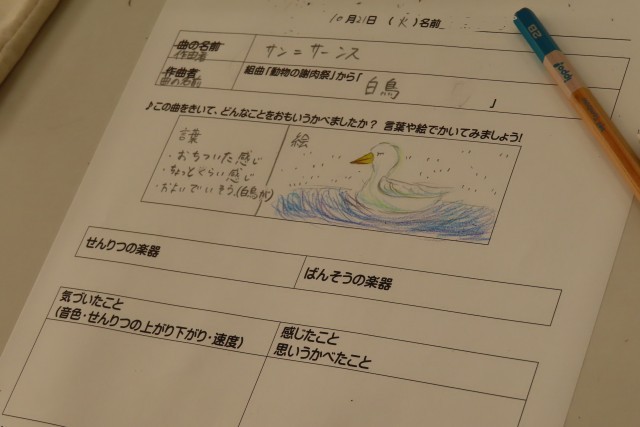 10月21日 (火) 名前
曲の名前
作曲者
サン=サーンス
作曲者
曲の名前
組曲「動物の謝肉祭」から「 白鳥 」
♪この曲をきいて、どんなことをおもいうかべましたか? 言葉や絵でかいてみましょう!
言葉
絵
・おちついた感じ
・ちょっとくらい感じ
・およいでいそう。(白鳥が)
せんりつの楽器
ばんそうの楽器
気づいたこと
(音色・せんりつの上がり下がり・速度)
感じたこと
思いうかべたこと
2B